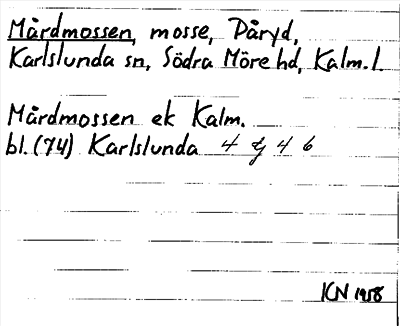 Mårdmossen, mosse, Påryd,
Karlslunda sn, Södra Möre hd, Kalm. l.
Mårdmossen ek Kalm.
bl. (74) Karlslunda 4 g 4 6
KN 1958